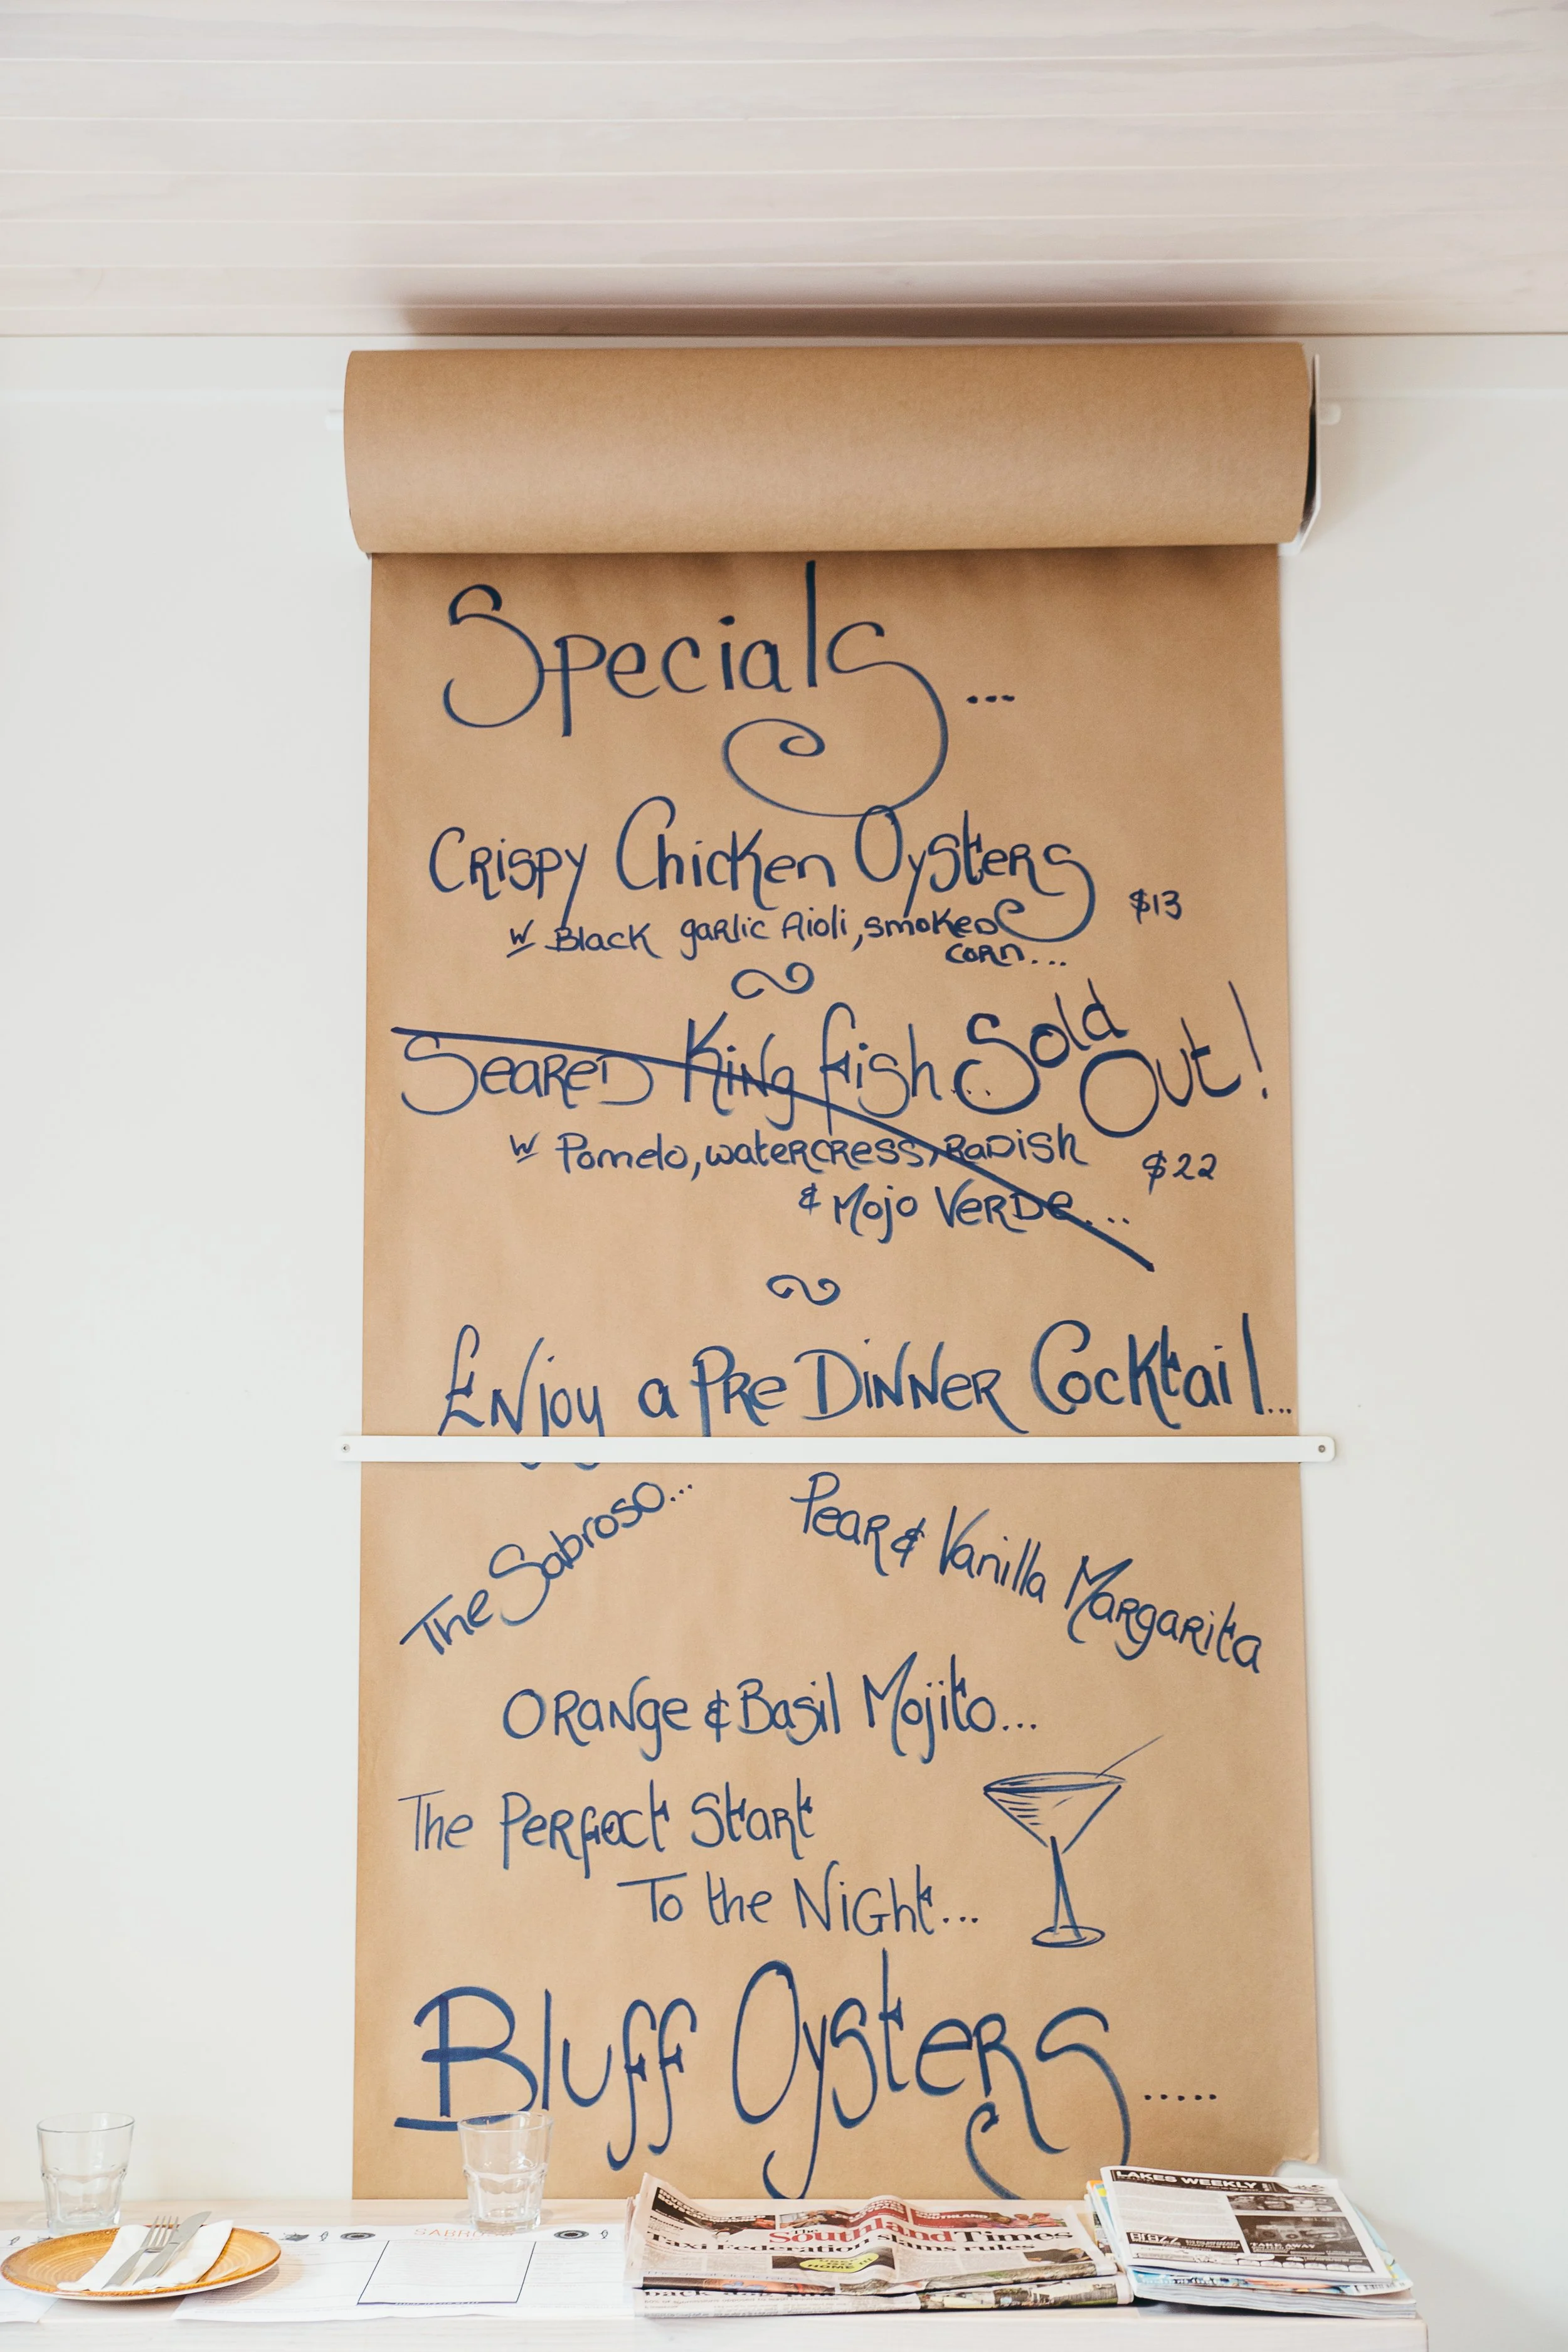 Specials...
Crispy Chicken Oysters
w Black garlic Aioli, smoked $13
corn...
Seared King fish... Sold Out!
w Pomelo, watercress, Radish $22
& Mojo Verde...
Enjoy a Pre Dinner Cocktail...
The Sabroso...
Pear & Vanilla Margarita
Orange & Basil Mojito...
The Perfect Start
To the Night...
Bluff Oysters.....
LAKES WEEKLY
The Southland Times
Taxi Federation slams rules
TAKE AWAY